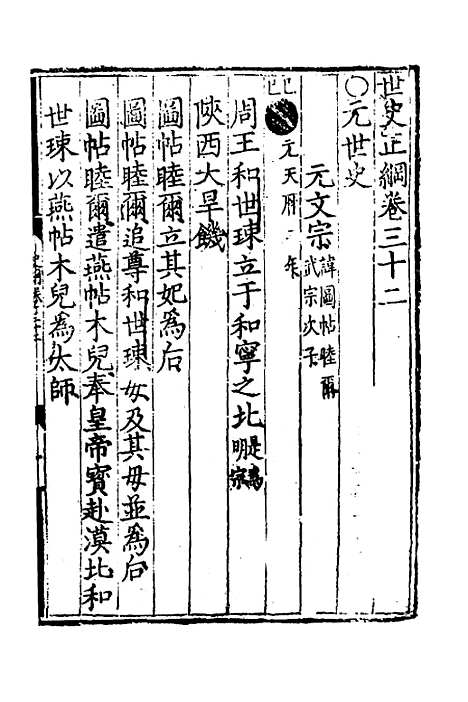 世史正綱卷三十二
〇元世史
元文宗 諱圖帖睦爾 武宗次子
己巳 元天曆二年
周王和世㻋立于和寧之北 是為明宗
陜西大旱饑
圖帖睦爾立其妃為后
圖帖睦爾追尊和世㻋母及其母並為后
圖帖睦爾遣燕帖木兒奉皇帝寶赴漠北和
世㻋以燕帖木兒為太師